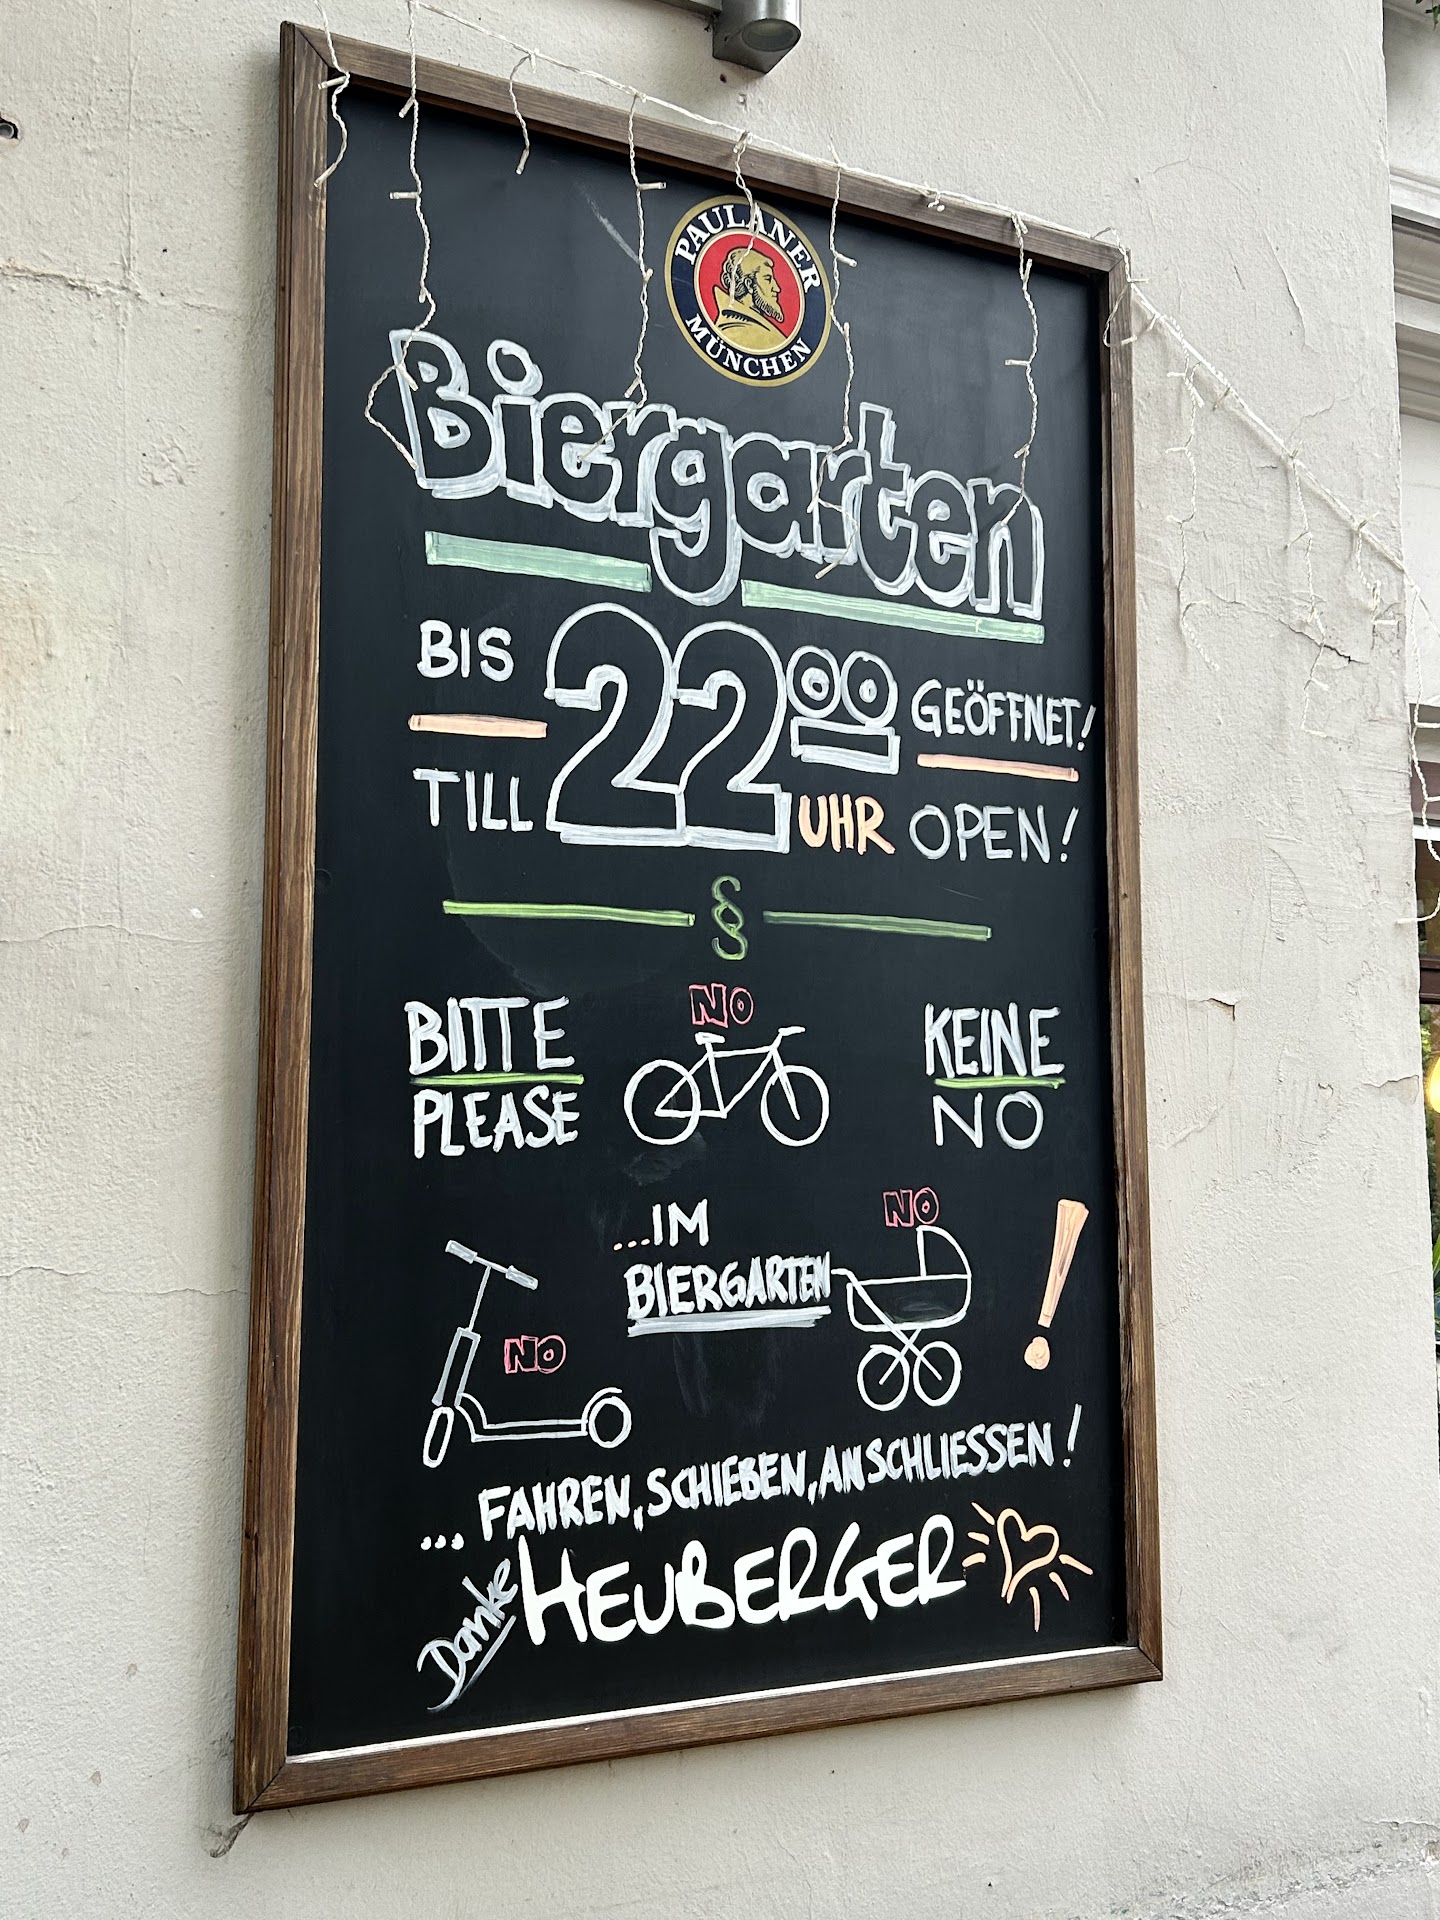 PAULANER
MÜNCHEN
Biergarten
BIS 22 00 GEÖFFNET!
TILL UHR OPEN!
§
NO
BITTE KEINE
PLEASE NO
NO
...IM
BIERGARTEN
NO
... FAHREN, SCHIEBEN, ANSCHLIESSEN!
Danke HEUBERGER